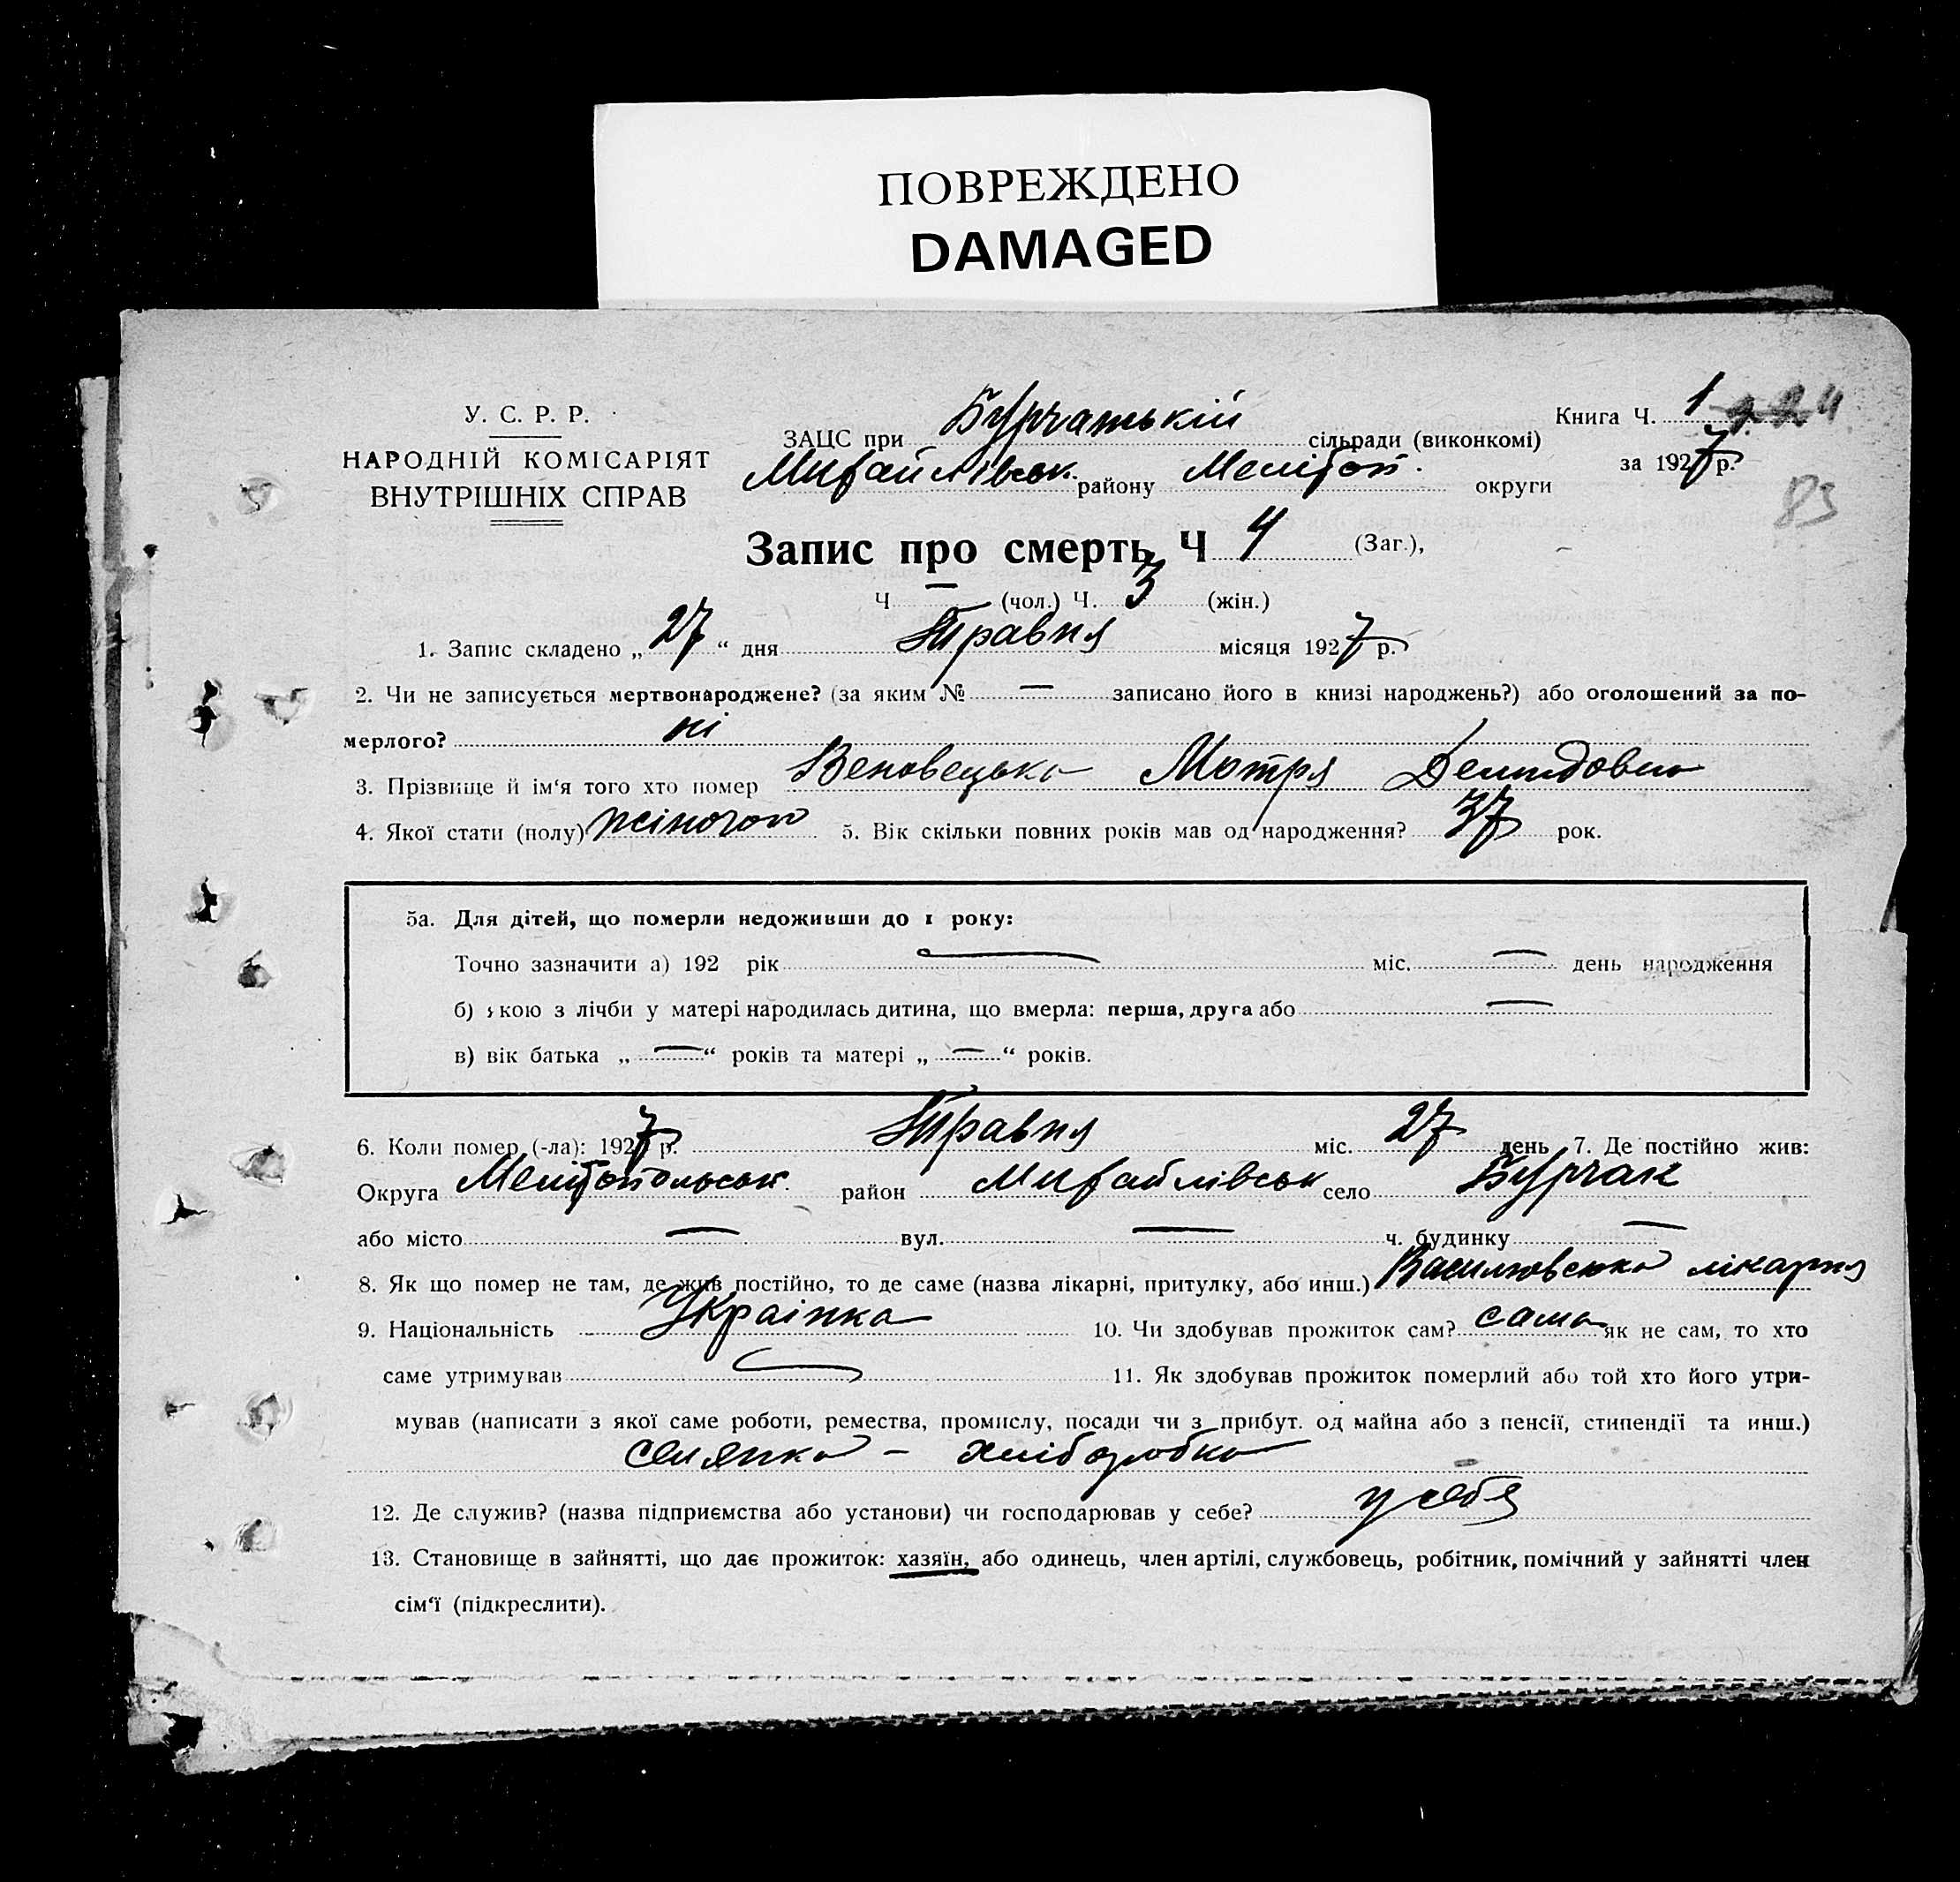 ПОВРЕЖДЕНО
DAMAGED
У. С. Р. Р.
НАРОДНІЙ КОМІСАРІЯТ
ВНУТРІШНІХ СПРАВ
Книга Ч. 1
ЗАЦС при Бурчатській сільради (виконкомі)
за 1927 р.
Михайлівськ. району Мелітоп. округи
83
Запис про смерть Ч 4 (Заг.),
Ч — (чол.) Ч. 3 (жін.)
1. Запис складено „ 27 “ дня Травня місяця 1927 р.
2. Чи не записується мертвонароджене? (за яким № — записано його в книзі народжень?) або оголошений за по-
мерлого? ні
3. Прізвище й ім‘я того хто помер Веновецька Мотря Демидовна
4. Якої стати (полу) жіночої 5. Вік скільки повних років мав од народження? 37 рок.
5а. Для дітей, що померли недоживши до 1 року:
Точно зазначити а) 192 рік — міс. — день народження
б) якою з лічби у матері народилась дитина, що вмерла: перша, друга або —
в) вік батька „ — “ років та матері „ — “ років.
6. Коли помер (-ла): 1927 р. Травня міс. 27 день 7. Де постійно жив:
Округа Мелітопольськ. район Михайлівськ село Бурчак
або місто — вул. — ч. будинку —
8. Як що помер не там, де жив постійно, то де саме (назва лікарні, притулку, або инш.) Василівська лікарня
9. Національність Українка 10. Чи здобував прожиток сам? сама як не сам, то хто
саме утримував — 11. Як здобував прожиток померлий або той хто його утри-
мував (написати з якої саме роботи, ремества, промислу, посади чи з прибут. од майна або з пенсії, стипендії та инш.)
селянка – хліборобка
12. Де служив? (назва підприємства або установи) чи господарював у себе? у себя
13. Становище в зайнятті, що дає прожиток: хазяїн, або одинець, член артілі, службовець, робітник, помічний у зайнятті член
сім‘ї (підкреслити).